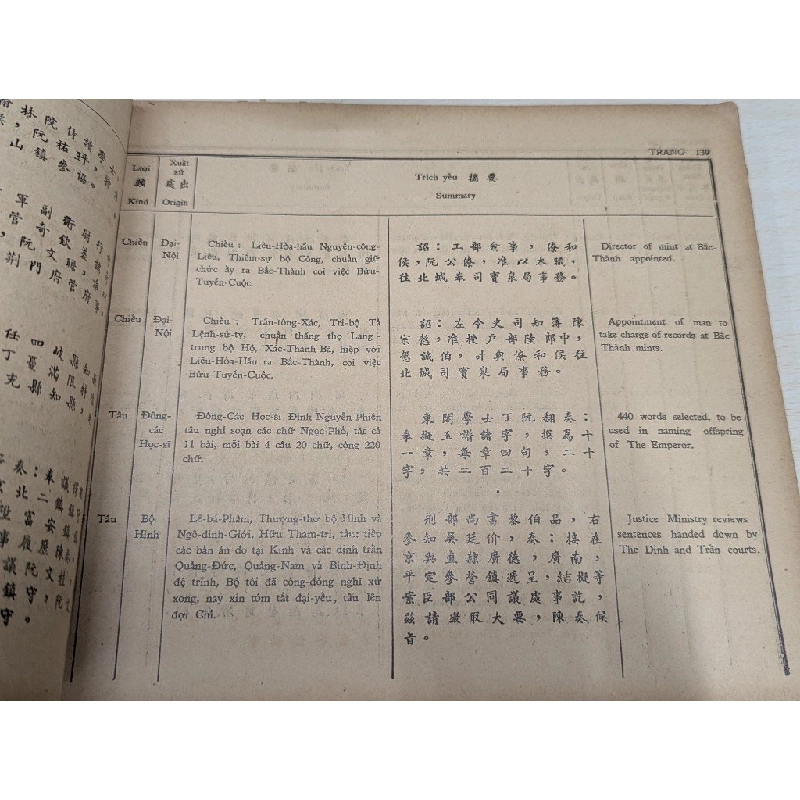 TRANG 139
Loại
類
Kind
Xuất
xứ
處出
Origin
Trích yếu 摘要
Summary
Chiếu
Đại-
Nội
Chiếu : Liêu-Hòa-hầu Nguyễn-công-
Liêu, Thiêm-sự bộ Công, chuẩn giữ
chức ấy ra Bắc-Thành coi việc Bửu-
Tuyền-Cuộc.
詔：工部僉事，僚和
侯，阮公僚，准以本職，
往北城奉司寶泉局事務。
Director of mint at Bắc-
Thành appointed.
Chiếu
Đại-
Nội
Chiếu : Trần-tông-Xác, Tri-bộ Tả
Lệnh-sử-ty, chuẩn thăng thọ Lang-
trung bộ Hộ, Xác-Thành-Bá, hiệp với
Liêu-Hòa-Hầu ra Bắc-Thành, coi việc
Bửu Tuyền-Cuộc.
詔：左令史司知簿陳
宗慤，准授戶部郎中，
慤誠伯，引與僚和侯往
北城司寶泉局事務。
Appointment of man to
take charge of records at Bắc
Thành mints.
Tấu
Đông-
các
Học-sĩ
Đông-Các Học-sĩ Đinh Nguyễn Phiên
tấu nghĩ soạn các chữ Ngọc-Phổ, tất cả
11 bài, mỗi bài 4 câu 20 chữ, cộng 220
chữ.
東閣學士丁阮翻奏：
奉擬玉譜諸字，撰為十
一章，每章四句，二十
字，共二百二十字。
440 words selected, to be
used in naming offspring
of The Emperor.
Tấu
Bộ
Hình
Lê-bá-Phẩm, Thượng-thơ bộ Hình và
Ngô-đình-Giới, Hữu Tham-tri, tấu: tiếp
các bản án do tại Kinh và các dinh trấn
Quảng-Đức, Quảng-Nam và Bình-Định
đệ trình, Bộ tôi đã công-đồng nghị xử
xong, nay xin tóm tắt đại-yếu, tấu lên
đợi Chỉ.
刑部尚書黎伯品，右
參知吳廷价，奏：接在
京與直隸廣德，廣南，
平定參營鎮遞呈，結擬等
案臣部公同議處事訖，
茲請撮取大要，陳奏候
旨。
Justice Ministry reviews
sentences handed down by
The Dinh and Trấn courts.